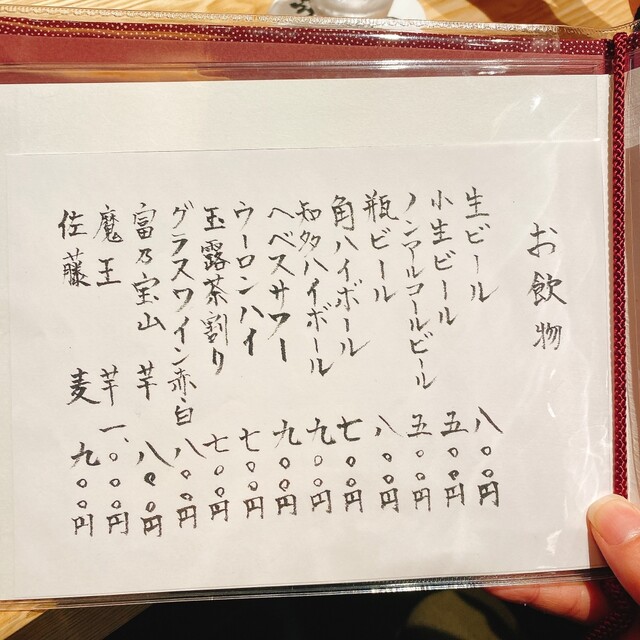 お飲物
生ビール 八〇〇円
小生ビール 五〇〇円
ノンアルコールビール 五〇〇円
瓶ビール 八〇〇円
角ハイボール 七〇〇円
知多ハイボール 九〇〇円
ヘベスサワー 九〇〇円
ウーロンハイ 七〇〇円
玉露茶割り 七〇〇円
グラスワイン赤・白 八〇〇円
富乃宝山 芋 八〇〇円
魔王 芋 一、〇〇〇円
佐藤 麦 九〇〇円